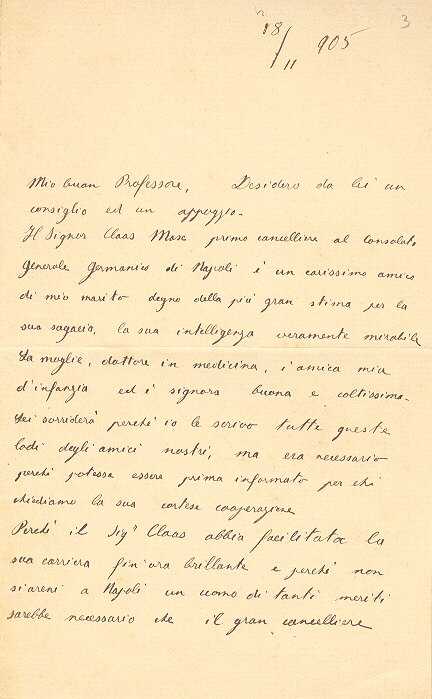 3
18/11 905
Mio buon Professore, Desidero da lei un
consiglio ed un appoggio.
Il Signor Claas Max primo cancelliere al Consolato
Generale Germanico di Napoli è un carissimo amico
di mio marito degno della più gran stima per la
sua sagacia, la sua intelligenza veramente mirabile
La moglie, dottore in medicina, è amica mia
d'infanzia ed è signora buona e coltissima.
Lei sorriderà perché io le scrivo tutte queste
lodi degli amici nostri, ma era necessario
perché potesse essere prima informato per chi
chiediamo la sua cortese cooperazione
Perché il Sigr Claas abbia facilitata la
sua carriera fin'ora brillante e perché non
si areni a Napoli un uomo di tanti meriti
sarebbe necessario che il gran cancelliere